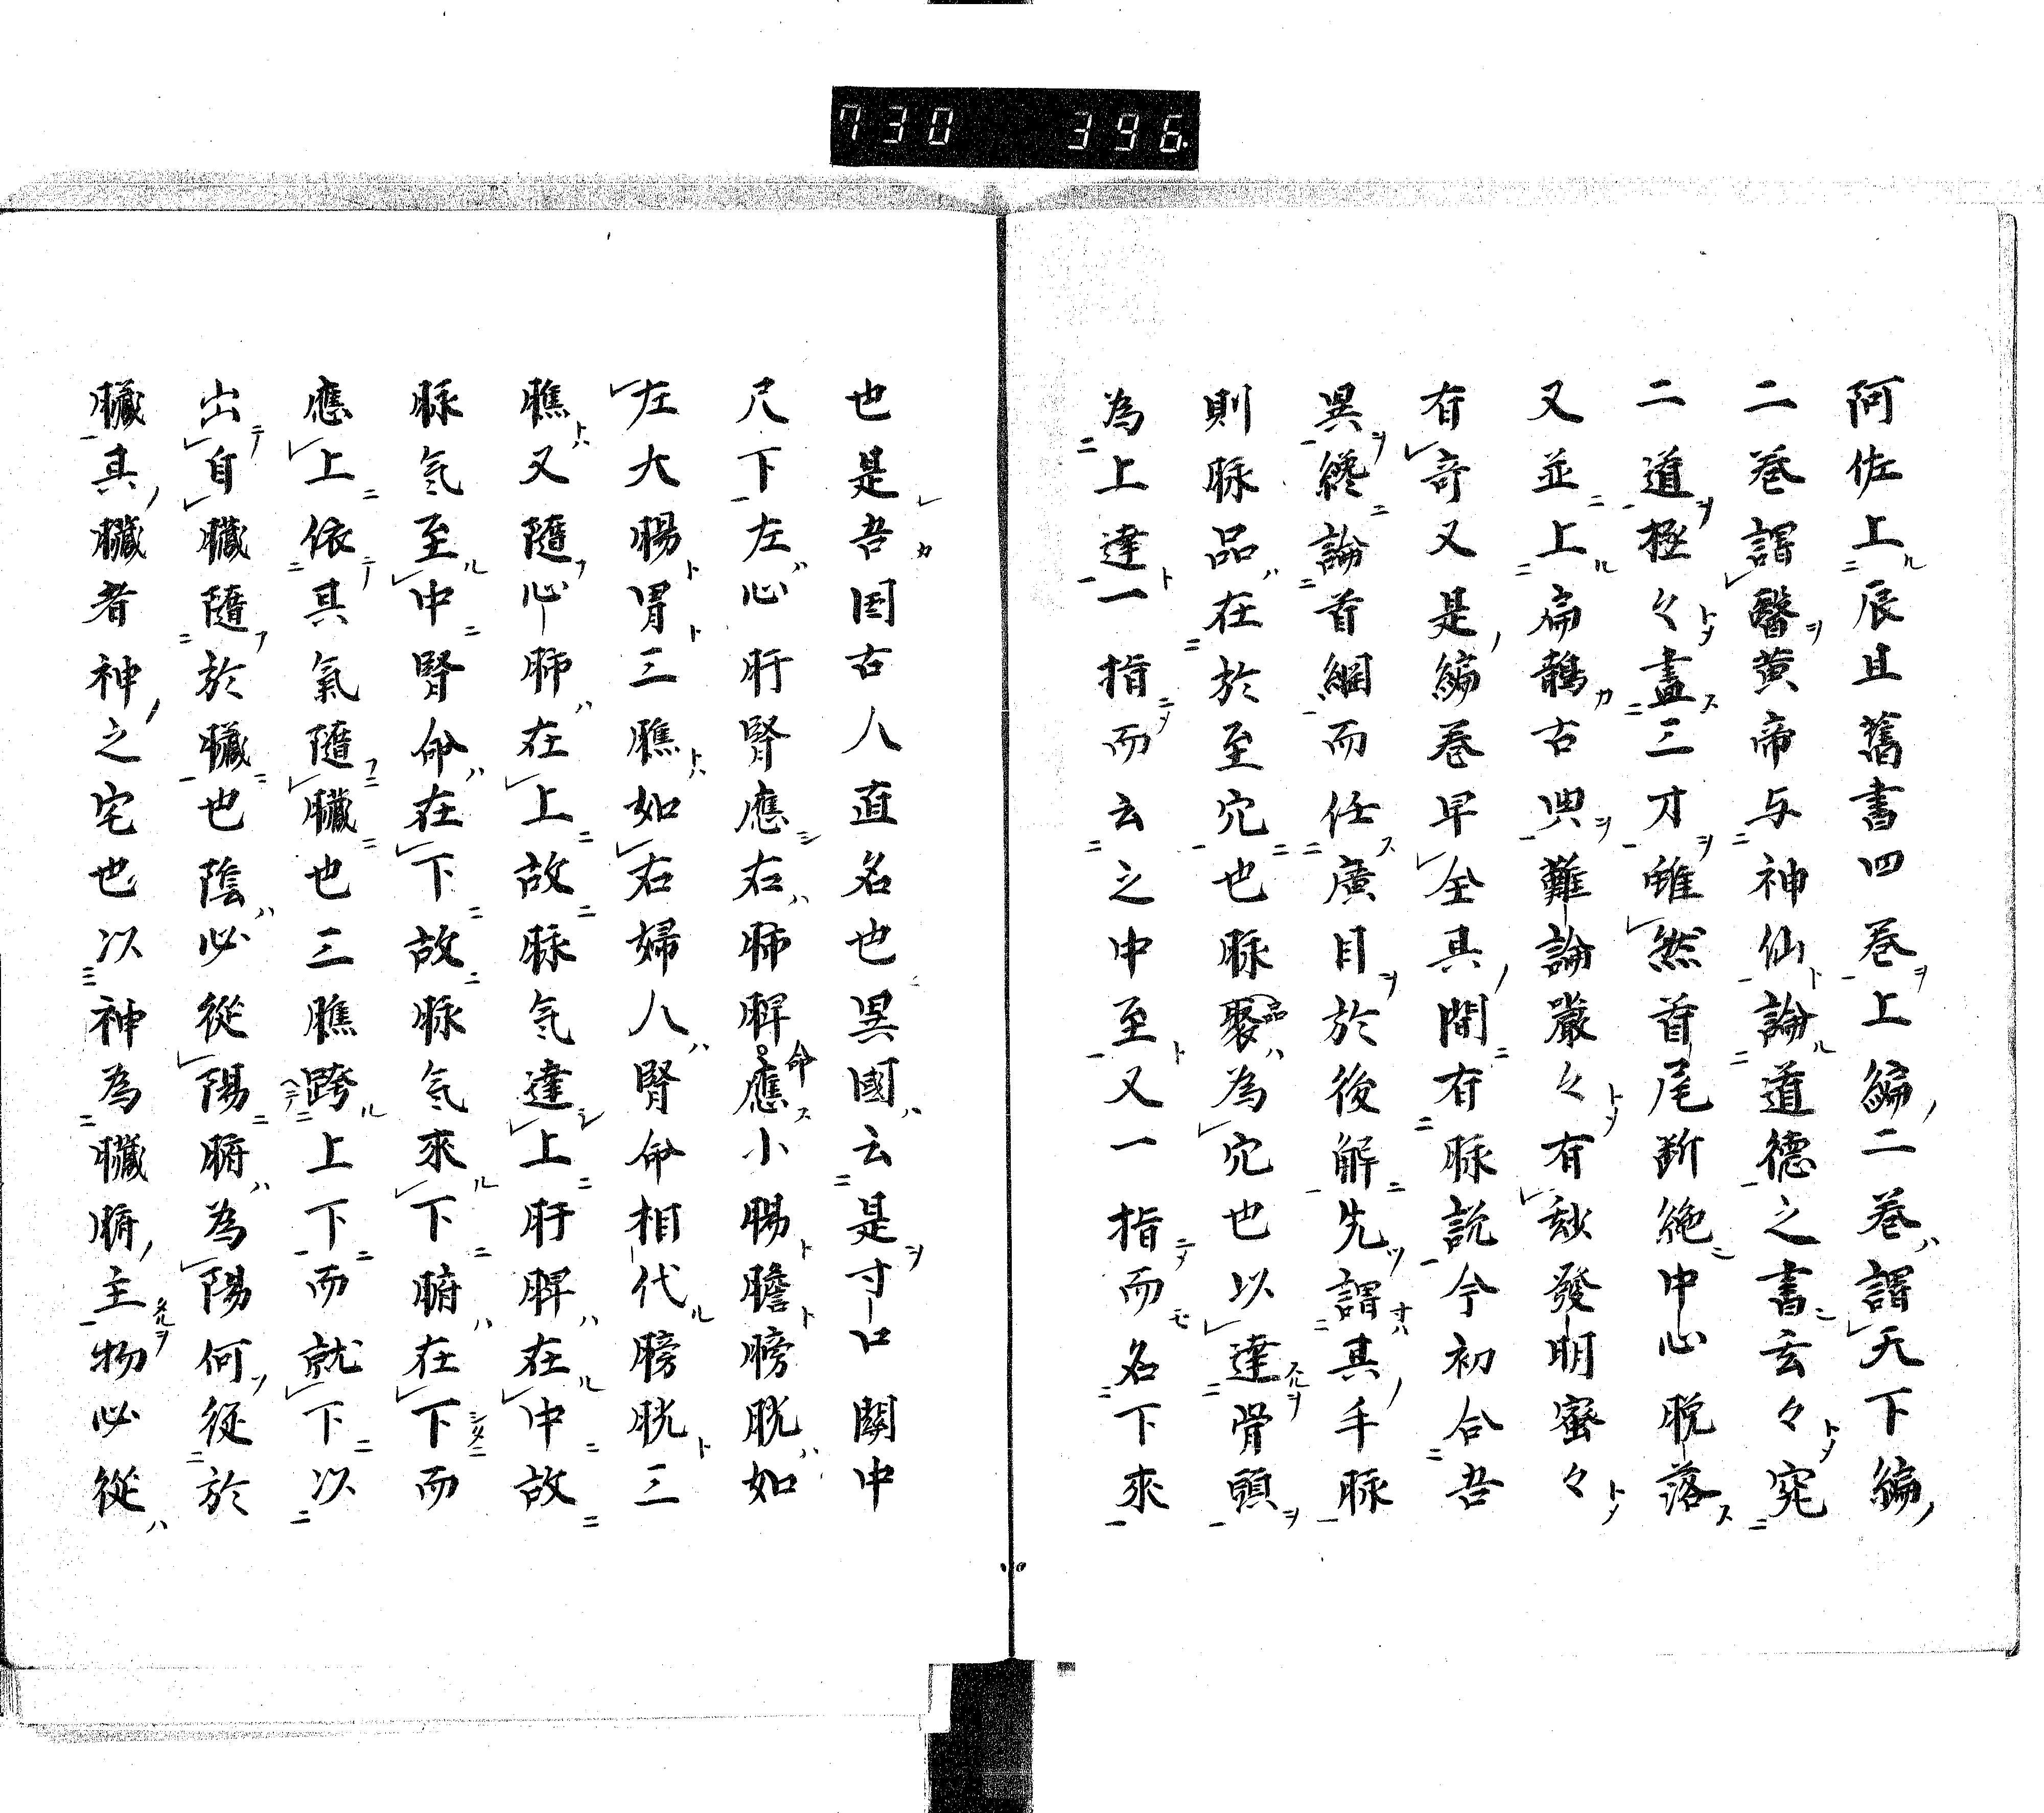 730 396
阿佐上辰且舊書四巻上編二巻謂天下編
二巻謂醫黄帝与神仙論道德之書玄々究
二道極々盡三才雖然首尾斷絶中心脱落
又並上扁鵲古典難論嚴々有秘發明密々
有奇又是編巻早全具間有脉説今初合吾
異纔論首綱而任廣目於後解先謂其手脉
則脉品在於至穴也脉聚為穴也以達骨頭
為上達一指而云之中至又一指而名下來
也是吾国古人直名也異國云是寸口關中
尺下左心肝腎應右肺脾命應小腸膽膀胱如
左大腸胃三膲如右婦人腎命相代膀胱三
膲又隨心肺在上故脉気達上肝脾在中故
脉気至中腎命在下故脉気來下腑在下而
應上依其氣隨臓也三膲跨上下而就下以
出自臓隨於臓也陰必從陽腑為陽何従於
臓其臓者神之宅也以神為臓腑主物必從